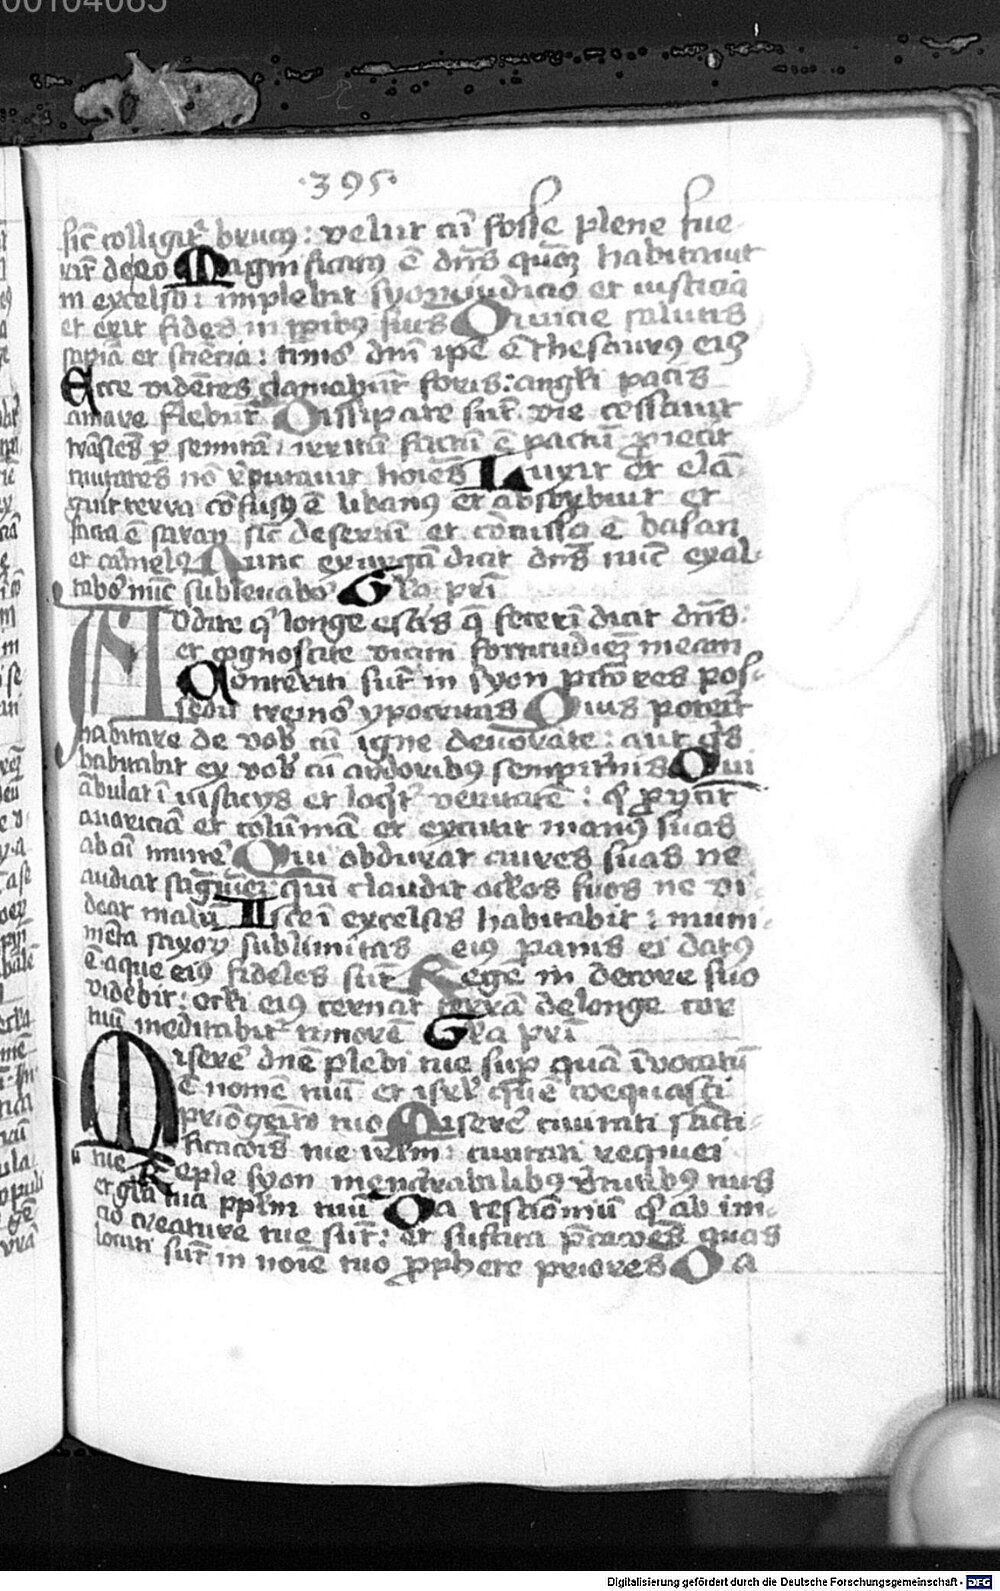 00104065
·395·
sic̄ colligit᷑ brucꝰ : velut cū fosse plene fue
rīt de eo Magnificatus ē dn̄s qm̄ habitauit
in excelso : implebit syon iudicio et iusticia
et erit fides in tp̄ibꝰ suis Diuicie salutis
sapiā et sciēcia : timor dn̄i ip̄e ē thesaurꝰ eiꝰ
Ecce vidētes clamabūt foris : angeli pacis
amare flebūt Dissipate sūt vie cessauit
trāsiēs ꝑ semitā : irritū factū ē pactū ꝓiecit
ciuitates nō reputauit hoīes Luxit et elā
guit terra cōfusꝰ ē libanꝰ et obsorduit et
facta ē saron sic̄ desertū et cōcussa ē basan
et carmelꝰ Nunc exurgā dicit dn̄s nūc exal
tabor nūc subleuabor Gl̄a pr̄i
Audite qͥ longe estis q̄ fecerī dicit dn̄s :
et cognoscite vicini fortitudinē meam
Conteriti sūt in syon pctōres pos
sedit tremor ypocritas Quis poterit
habitare de vob̄ cū igne deuorāte : aut qͥs
habitabit ex vob̄ cū ardoribꝰ sempiternis Qui
ābulat ī iusticijs et loqͥt᷑ veritatē : qͥ ꝓijcit
auariciā et calūniā et excutit manꝰ suas
ab oī munēe Qui obdurat aures suas ne
audiat sāguinē : qui claudit oc̄los suos ne vi
deat malū Iste ī excelsis habitabit : muni
mēta saxorū sublimitas eiꝰ panis ei datꝰ
ē aque eiꝰ fideles sūt Regē in decore suo
videbit : oc̄li eiꝰ cernāt terrā de longe cor
tuū meditabit᷑ timorē Gl̄a pr̄i
Miserē dn̄e plebi tue sup quā īvocatū
ē nomē tuū et isrl̄ quē coequasti
priōgeīto tuo Miserē ciuitati sācti
ficacōis tue irl̄m : ciuitati requiei
tue Reple syon inenarrabilibꝰ ꝟtutibꝰ tuis
et gl̄a tua ppl̄m tuū Da testīoniū qͥ ab ini
cio creature tue sūt : et suscita p̄cacōes quas
locuti sūt in noīe tuo ꝓphete priores Da
Digitalisierung gefördert durch die Deutsche Forschungsgemeinschaft - DFG